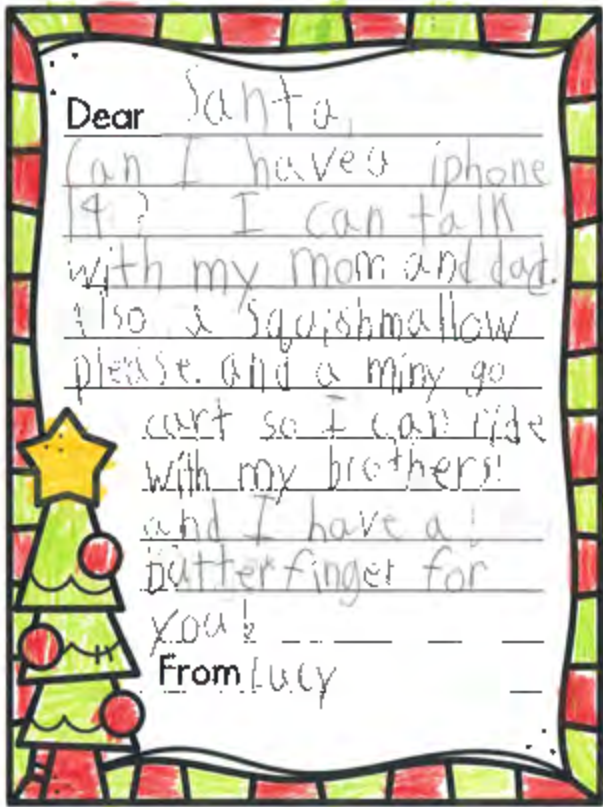 Dear Santa,
Can I have a iphone
14? I can talk
with my mom and dad.
Also a Squishmallow
please. and a miny go
cart so I can ride
with my brothers!
and I have a
butterfinger for
you!
From Lucy